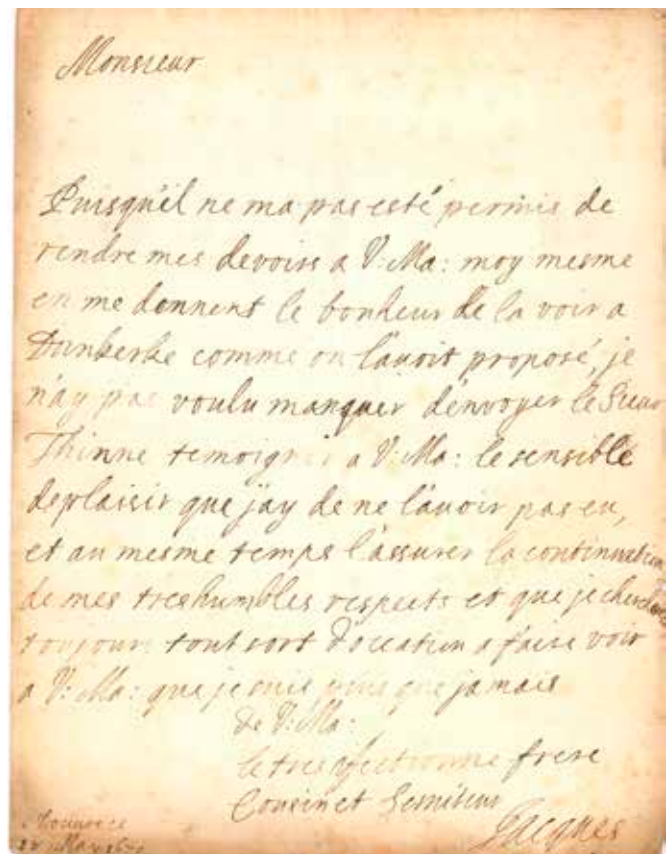 Monsieur
Puisqu'il ne ma pas esté permis de
rendre mes devoirs a V: Ma: moy mesme
en me donnent le bonheur de la voir a
Dunkerke comme on l'auoit proposé, je
n'ay pas voulu manquer d'envoyer le Sieur
Thinne temoigner a V: Ma: le sensible
deplaisir que j'ay de ne l'auoir pas eu,
et au mesme temps l'assurer la continuation
de mes tres humbles respects et que je chercheray
toujours tout sort d'occation a faire voir
a V: Ma: que je suis plus que jamais
de V: Ma:
le tres affectionne frere
Cousin et Seruiteur
Jacques